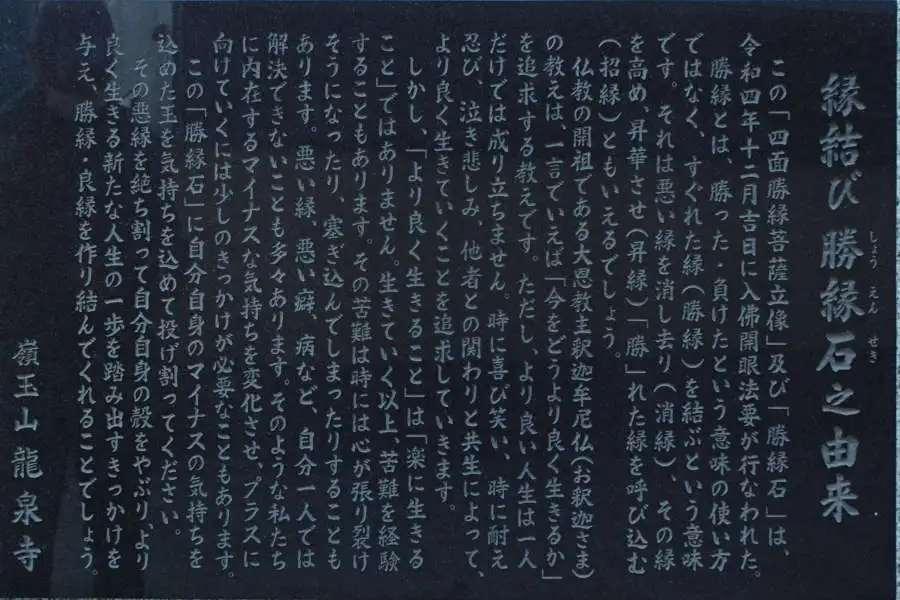 縁結び勝縁石之由来
しょう えん せき
この「四面勝縁菩薩立像」及び「勝縁石」は、
令和四年十二月吉日に入佛開眼法要が行なわれた。
勝縁とは、勝った・負けたという意味の使い方
ではなく、すぐれた縁(勝縁)を結ぶという意味
です。それは悪い縁を消し去り(消縁)、その縁
を高め、昇華させ(昇縁)「勝」れた縁を呼び込む
(招縁)ともいえるでしょう。
仏教の開祖である大恩教主釈迦牟尼仏(お釈迦さま)
の教えは、一言でいえば「今をどうより良く生きるか」
を追求する教えです。ただし、より良い人生は一人
だけでは成り立ちません。時に喜び笑い、時に耐え
忍び、泣き悲しみ、他者との関わりと共生によって、
より良く生きていくことを追求していきます。
しかし、「より良く生きること」は「楽に生きる
こと」ではありません。生きていく以上、苦難を経験
することもあります。その苦難は時には心が張り裂け
そうになったり、塞ぎ込んでしまったりすることも
あります。悪い縁、悪い癖、病など、自分一人では
解決できないことも多々あります。そのような私たち
に内在するマイナスな気持ちを変化させ、プラスに
向けていくには少しのきっかけが必要なこともあります。
この「勝縁石」に自分自身のマイナスの気持ちを
込めた玉を気持ちを込めて投げ割ってください。
その悪縁を絶ち割って自分自身の殻をやぶり、より
良く生きる新たな人生の一歩を踏み出すきっかけを
与え、勝縁・良縁を作り結んでくれることでしょう。
嶺玉山龍泉寺